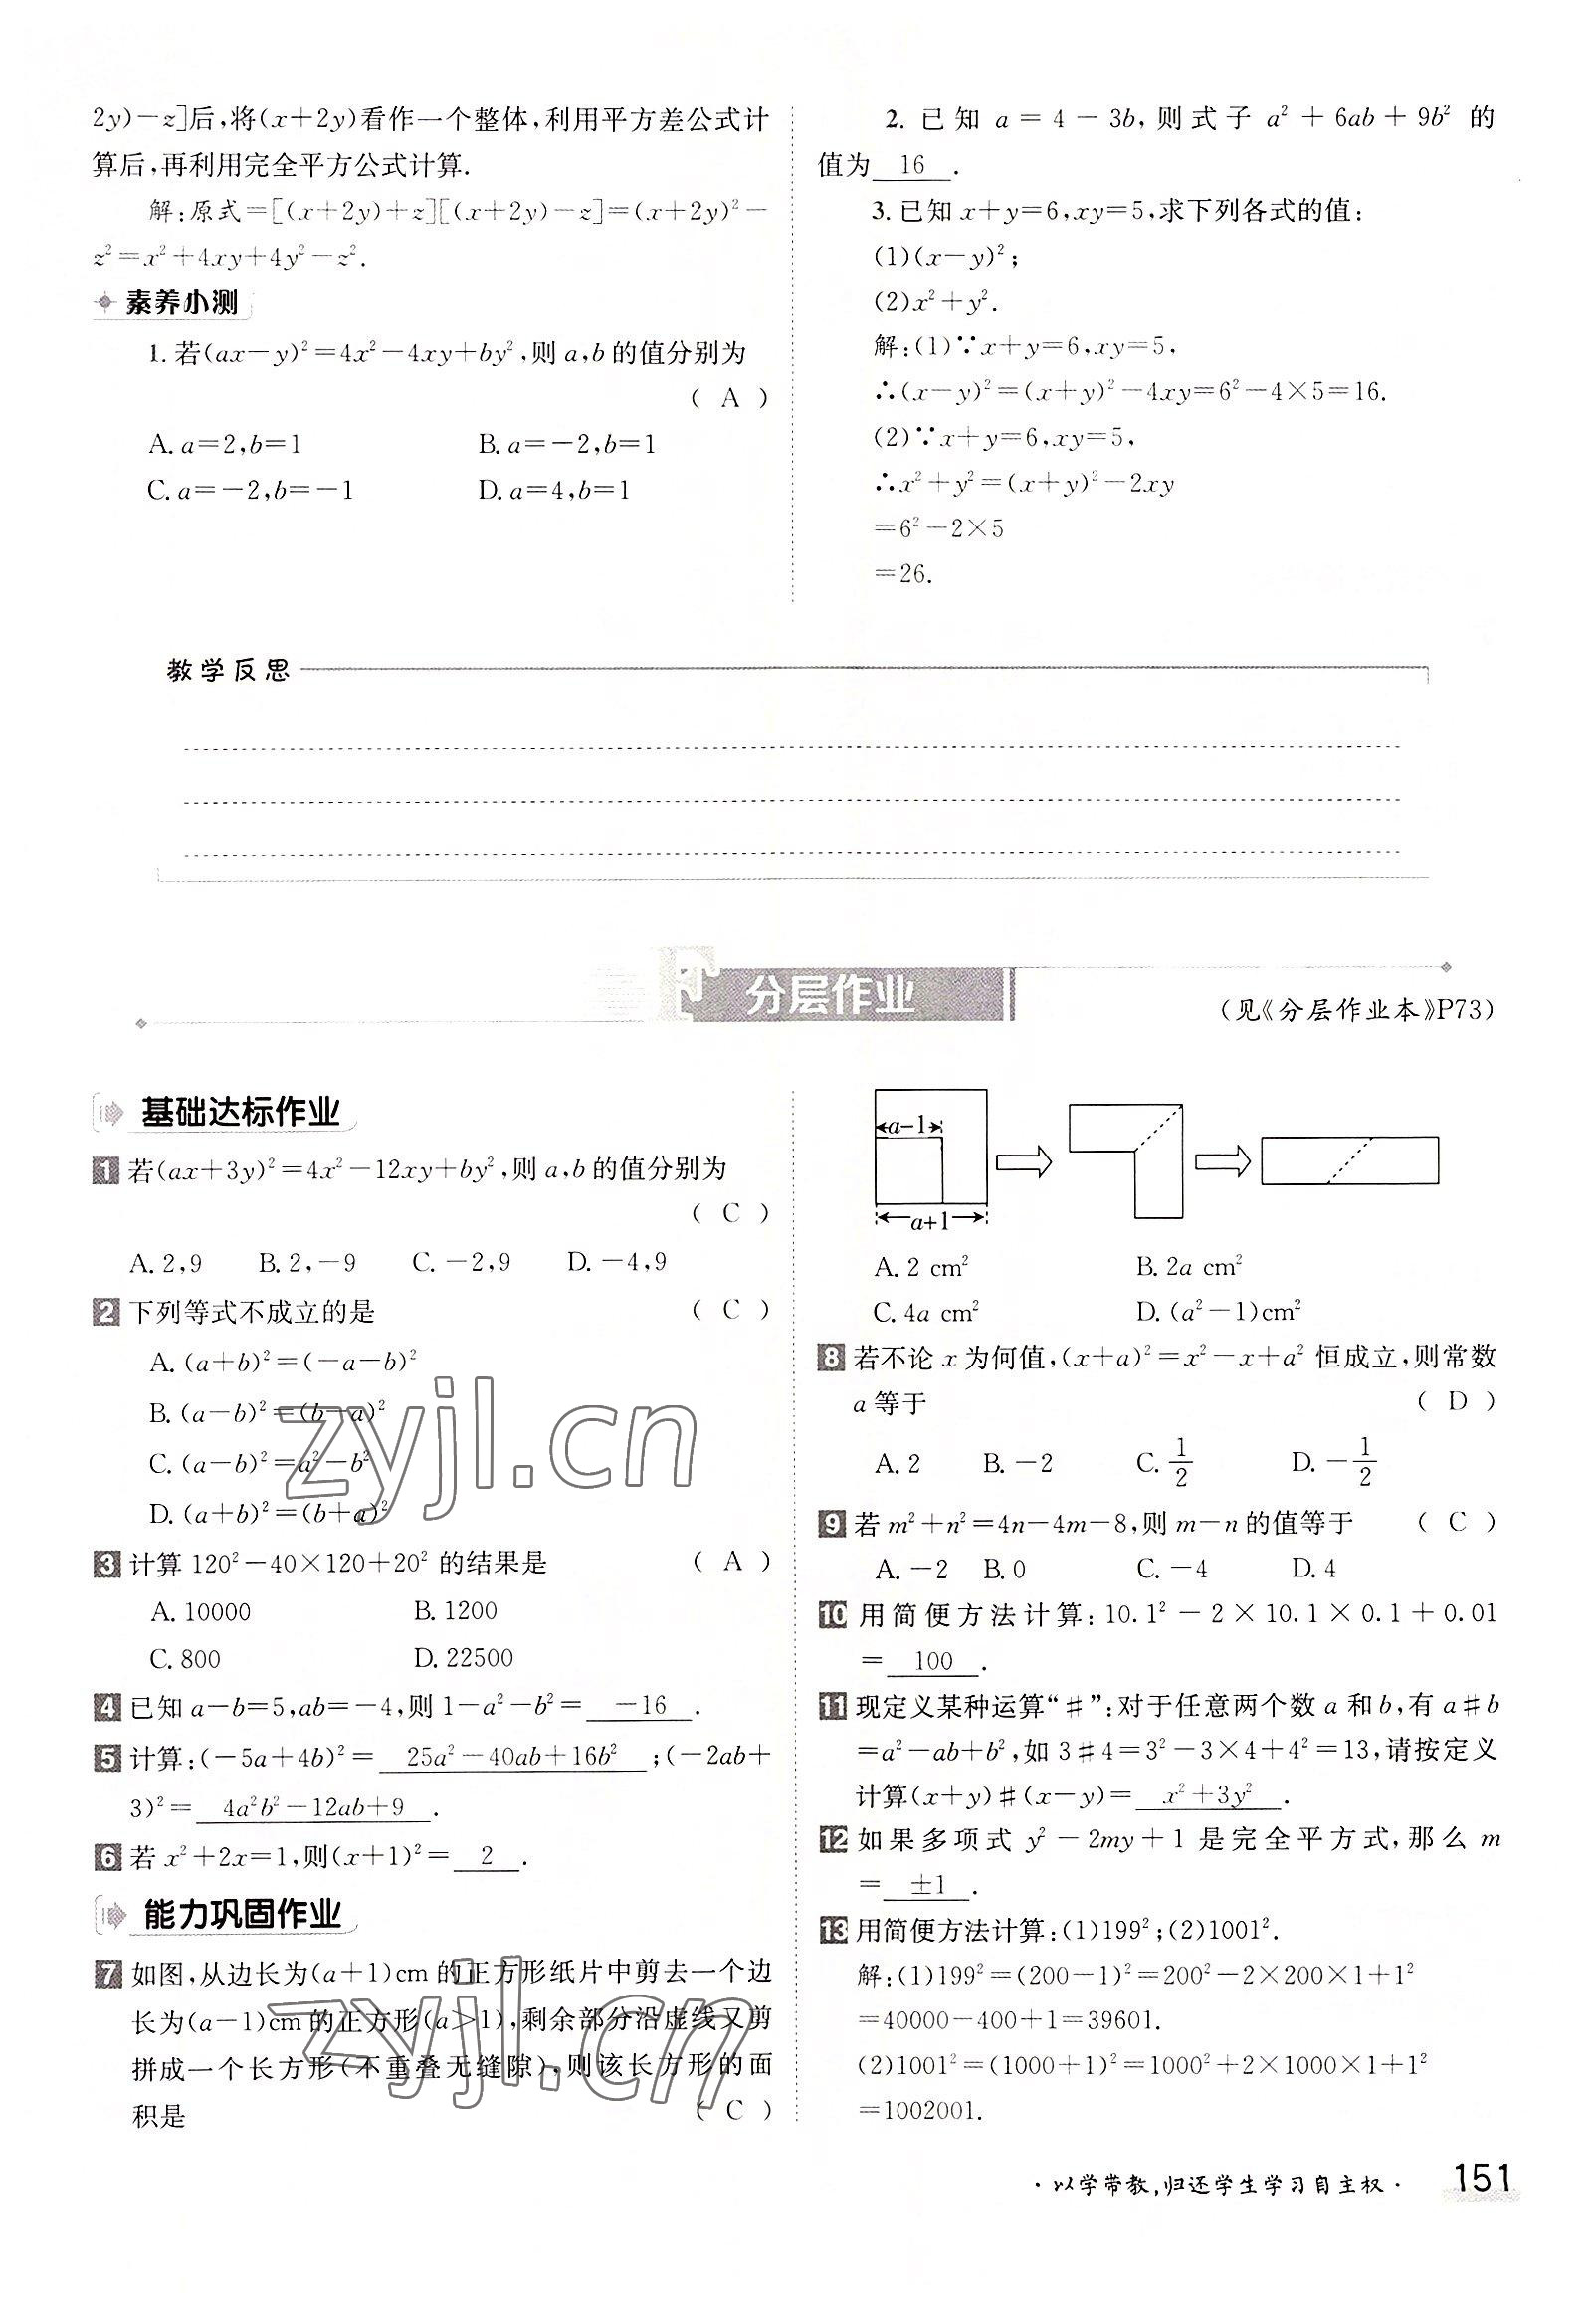 2y)－z]后,将(x＋2y)看作一个整体,利用平方差公式计
算后,再利用完全平方公式计算.
解:原式＝[(x＋2y)＋z][(x＋2y)－z]＝(x＋2y)²－
z²＝x²＋4xy＋4y²－z².
素养小测
1. 若(ax－y)²＝4x²－4xy＋by²,则 a,b 的值分别为
( A )
A. a＝2,b＝1 B. a＝－2,b＝1
C. a＝－2,b＝－1 D. a＝4,b＝1
2. 已知 a＝4－3b,则式子 a²＋6ab＋9b² 的
值为 16 .
3. 已知 x＋y＝6,xy＝5,求下列各式的值:
(1)(x－y)²;
(2)x²＋y².
解:(1)∵x＋y＝6,xy＝5,
∴(x－y)²＝(x＋y)²－4xy＝6²－4×5＝16.
(2)∵x＋y＝6,xy＝5,
∴x²＋y²＝(x＋y)²－2xy
＝6²－2×5
＝26.
教学反思
分层作业
(见《分层作业本》P73)
基础达标作业
1 若(ax＋3y)²＝4x²－12xy＋by²,则 a,b 的值分别为
( C )
A. 2,9 B. 2,－9 C. －2,9 D. －4,9
2 下列等式不成立的是 ( C )
A. (a＋b)²＝(－a－b)²
B. (a－b)²＝(b－a)²
C. (a－b)²＝a²－b²
D. (a＋b)²＝(b＋a)²
3 计算 120²－40×120＋20² 的结果是 ( A )
A. 10000 B. 1200
C. 800 D. 22500
4 已知 a－b＝5,ab＝－4,则 1－a²－b²＝ －16 .
5 计算:(－5a＋4b)²＝ 25a²－40ab＋16b² ;(－2ab＋
3)²＝ 4a²b²－12ab＋9 .
6 若 x²＋2x＝1,则(x＋1)²＝ 2 .
能力巩固作业
7 如图,从边长为(a＋1)cm 的正方形纸片中剪去一个边
长为(a－1)cm 的正方形(a＞1),剩余部分沿虚线又剪
拼成一个长方形(不重叠无缝隙),则该长方形的面
积是 ( C )
a－1
a＋1
A. 2 cm² B. 2a cm²
C. 4a cm² D. (a²－1)cm²
8 若不论 x 为何值,(x＋a)²＝x²－x＋a² 恒成立,则常数
a 等于 ( D )
A. 2 B. －2 C. 1/2 D. －1/2
9 若 m²＋n²＝4n－4m－8,则 m－n 的值等于 ( C )
A. －2 B. 0 C. －4 D. 4
10 用简便方法计算:10.1²－2×10.1×0.1＋0.01
＝ 100 .
11 现定义某种运算“♯”:对于任意两个数 a 和 b,有 a♯b
＝a²－ab＋b²,如 3♯4＝3²－3×4＋4²＝13,请按定义
计算(x＋y)♯(x－y)＝ x²＋3y² .
12 如果多项式 y²－2my＋1 是完全平方式,那么 m
＝ ±1 .
13 用简便方法计算:(1)199²;(2)1001².
解:(1)199²＝(200－1)²＝200²－2×200×1＋1²
＝40000－400＋1＝39601.
(2)1001²＝(1000＋1)²＝1000²＋2×1000×1＋1²
＝1002001.
zyjl.cn
zyjl.cn
·以学带教,归还学生学习自主权· 151